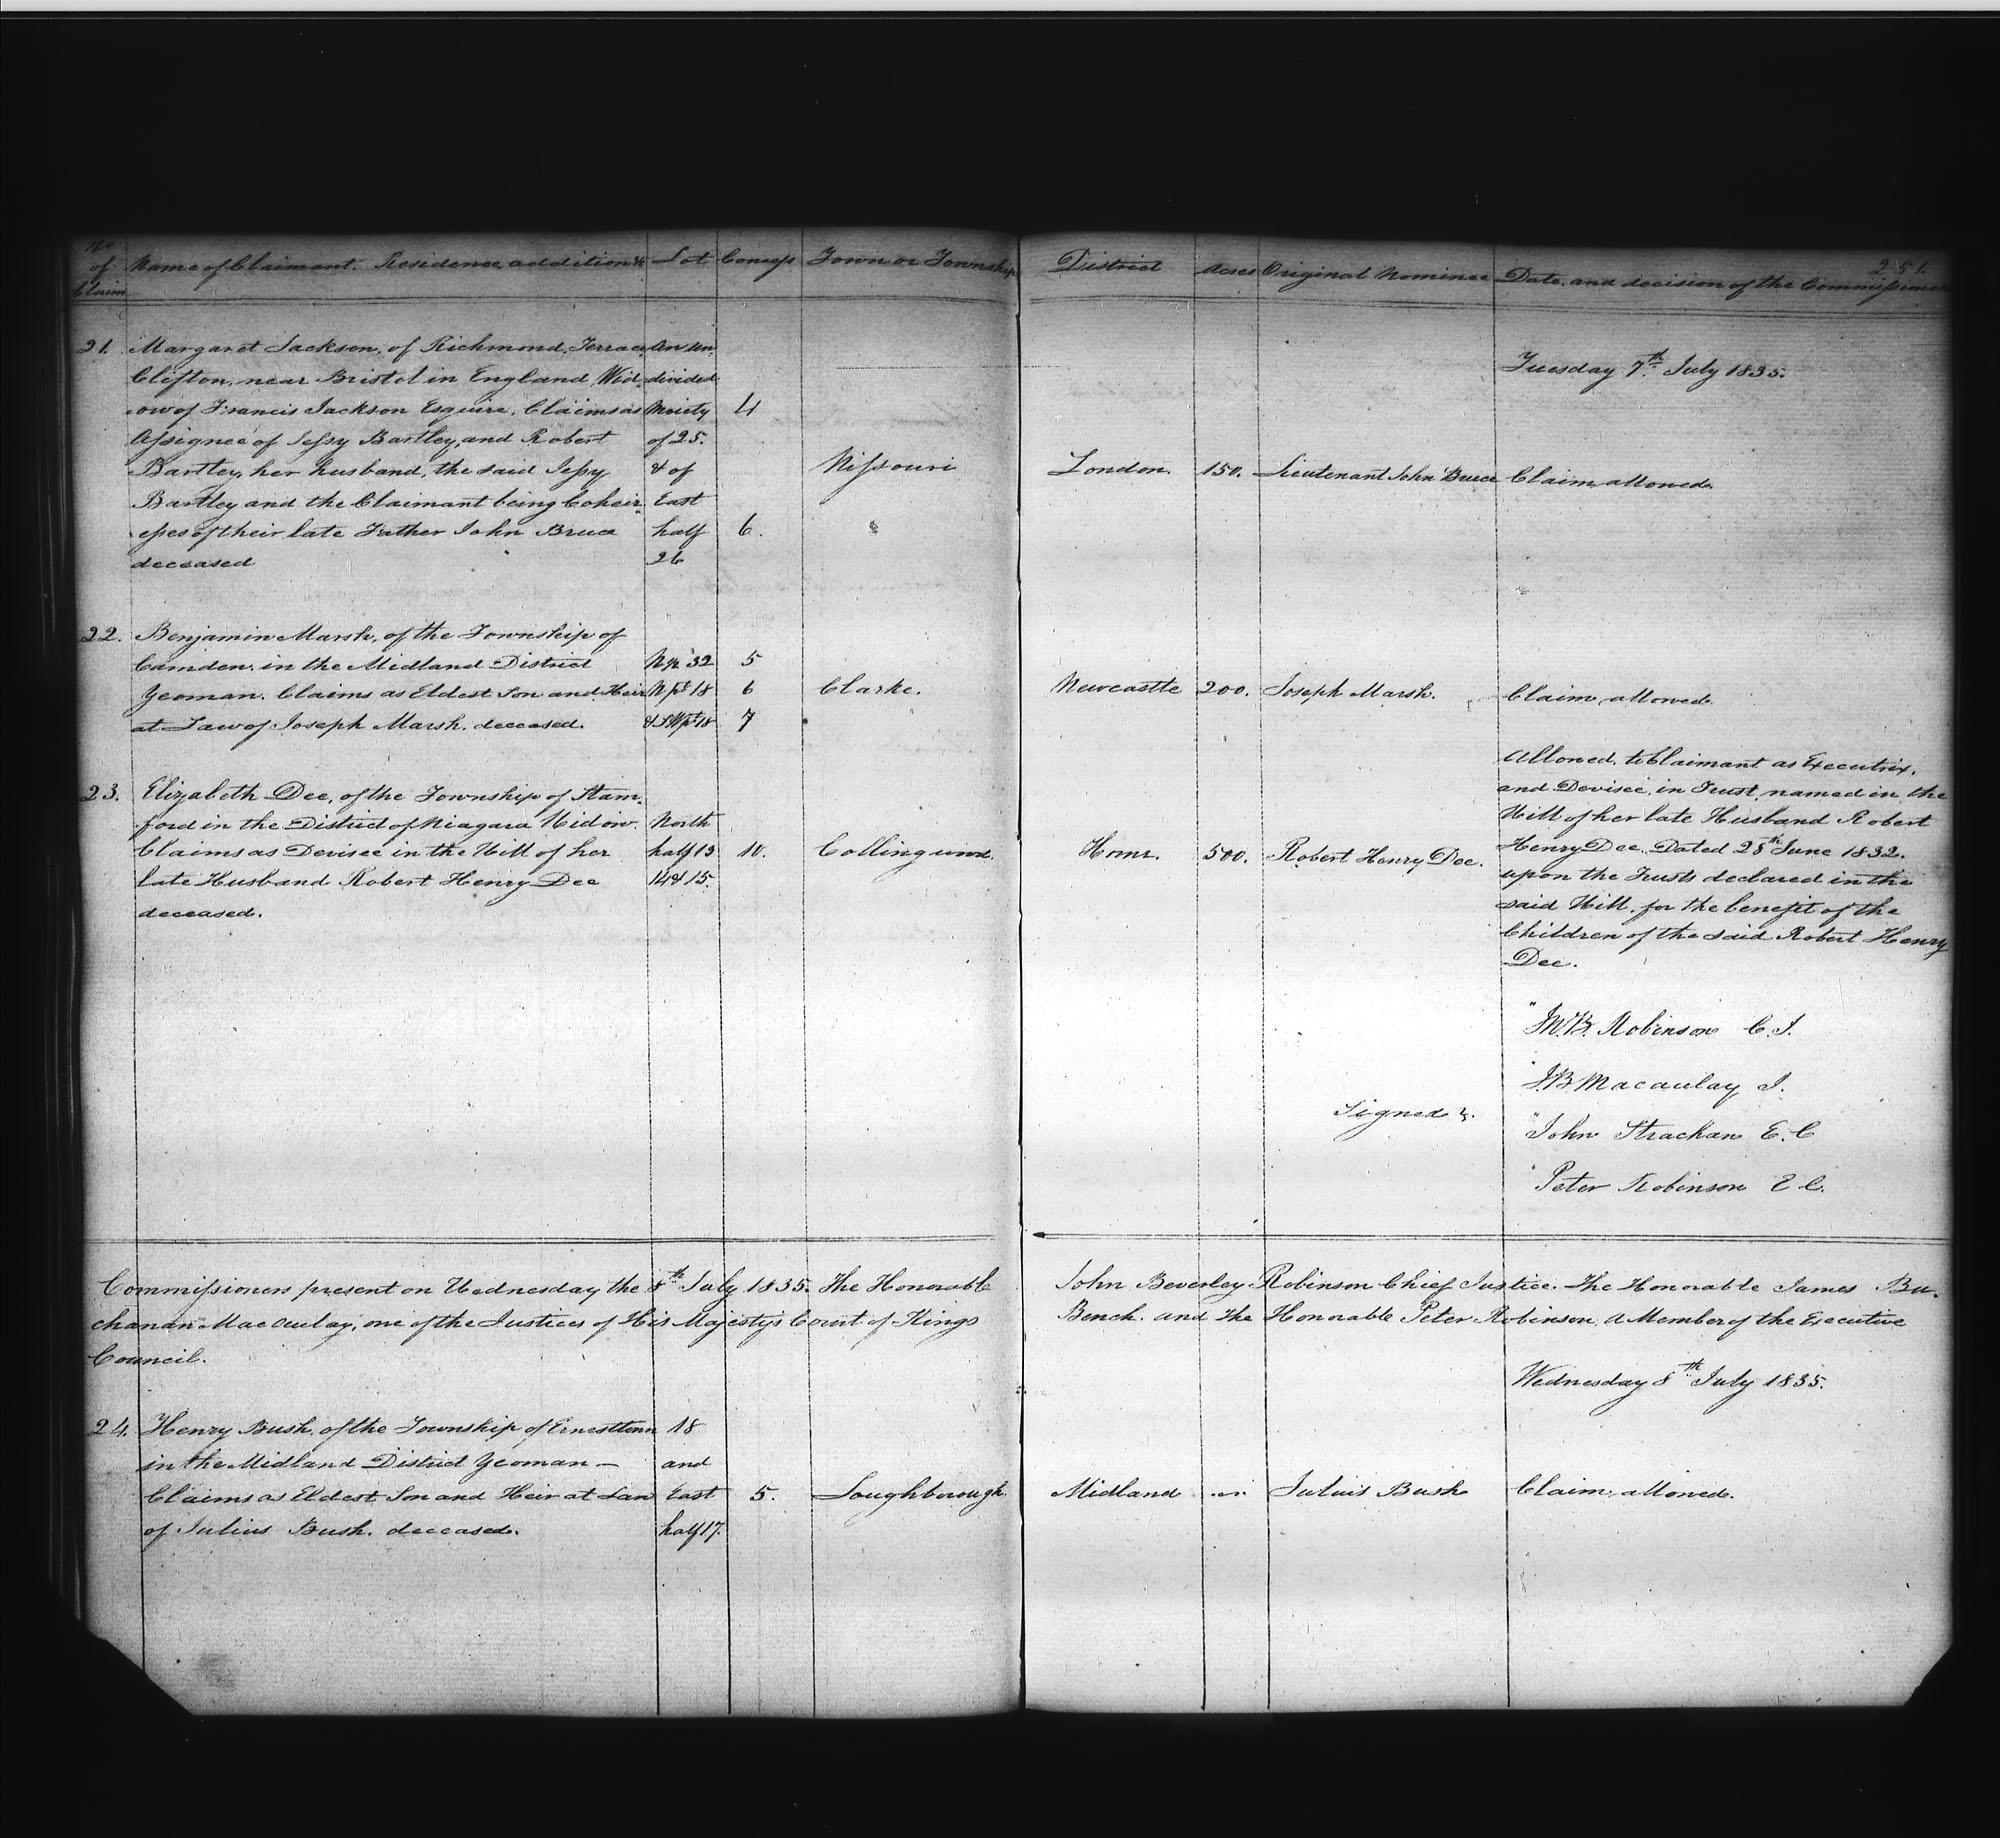 No of Claim
Name of Claimant. Residence, addition &c
Lot
Concess
Town or Township
District
Acres
Original Nominee
Date, and decision of the Commissioners
251.
21.
Margaret Jackson, of Richmond, Terrace
Clifton, near Bristol in England, Wid-
ow of Francis Jackson Esquire. Claims as
Assignee of Jessy Bartley, and Robert
Bartley, her husband, the said Jessy
Bartley and the Claimant being Coheir-
esses of their late Father John Bruce
deceased
An un-
divided
Moiety
of 25.
& of
East
half
26
4
6.
Nissouri
London.
150.
Lieutenant John Bruce
Tuesday 7th July 1835.
Claim, allowed.
22.
Benjamin Marsh, of the Township of
Camden, in the Midland District
Yeoman. Claims as Eldest Son and Heir
at Law of Joseph Marsh, deceased.
32
N pt 18
& SW pt 18
5
6
7
Clarke.
Newcastle
200.
Joseph Marsh.
Claim, allowed.
23.
Elizabeth Dee, of the Township of Stam-
ford in the District of Niagara Widow.
Claims as Devisee in the Will of her
late Husband Robert Henry Dee
deceased.
North
half 13
14 & 15.
10.
Collingwood.
Home.
500.
Robert Henry Dee.
Allowed, to Claimant as Executrix,
and Devisee, in Trust, named in the
Will of her late Husband Robert
Henry Dee. Dated 28th June 1832.
upon the Trusts declared in the
said Will, for the benefit of the
Children of the said Robert Henry
Dee.
Signed
" Jno. B. Robinson C. J.
" J. B. Macaulay J.
" John Strachan E. C
" Peter Robinson E C.
Commissioners present on Wednesday the 8th July 1835. The Honorable John Beverley Robinson Chief Justice. The Honorable James Bu-
chanan Macaulay, one of the Justices of His Majesty's Court of Kings Bench. and The Honorable Peter Robinson, a Member of the Executive
Council.
Wednesday 8th July 1835.
24.
Henry Bush, of the Township of Ernesttown
in the Midland District Yeoman –
Claims as Eldest Son and Heir at Law
of Julius Bush. deceased.
18
and
East
half 17.
5.
Loughborough
Midland
Julius Bush
Claim, allowed.